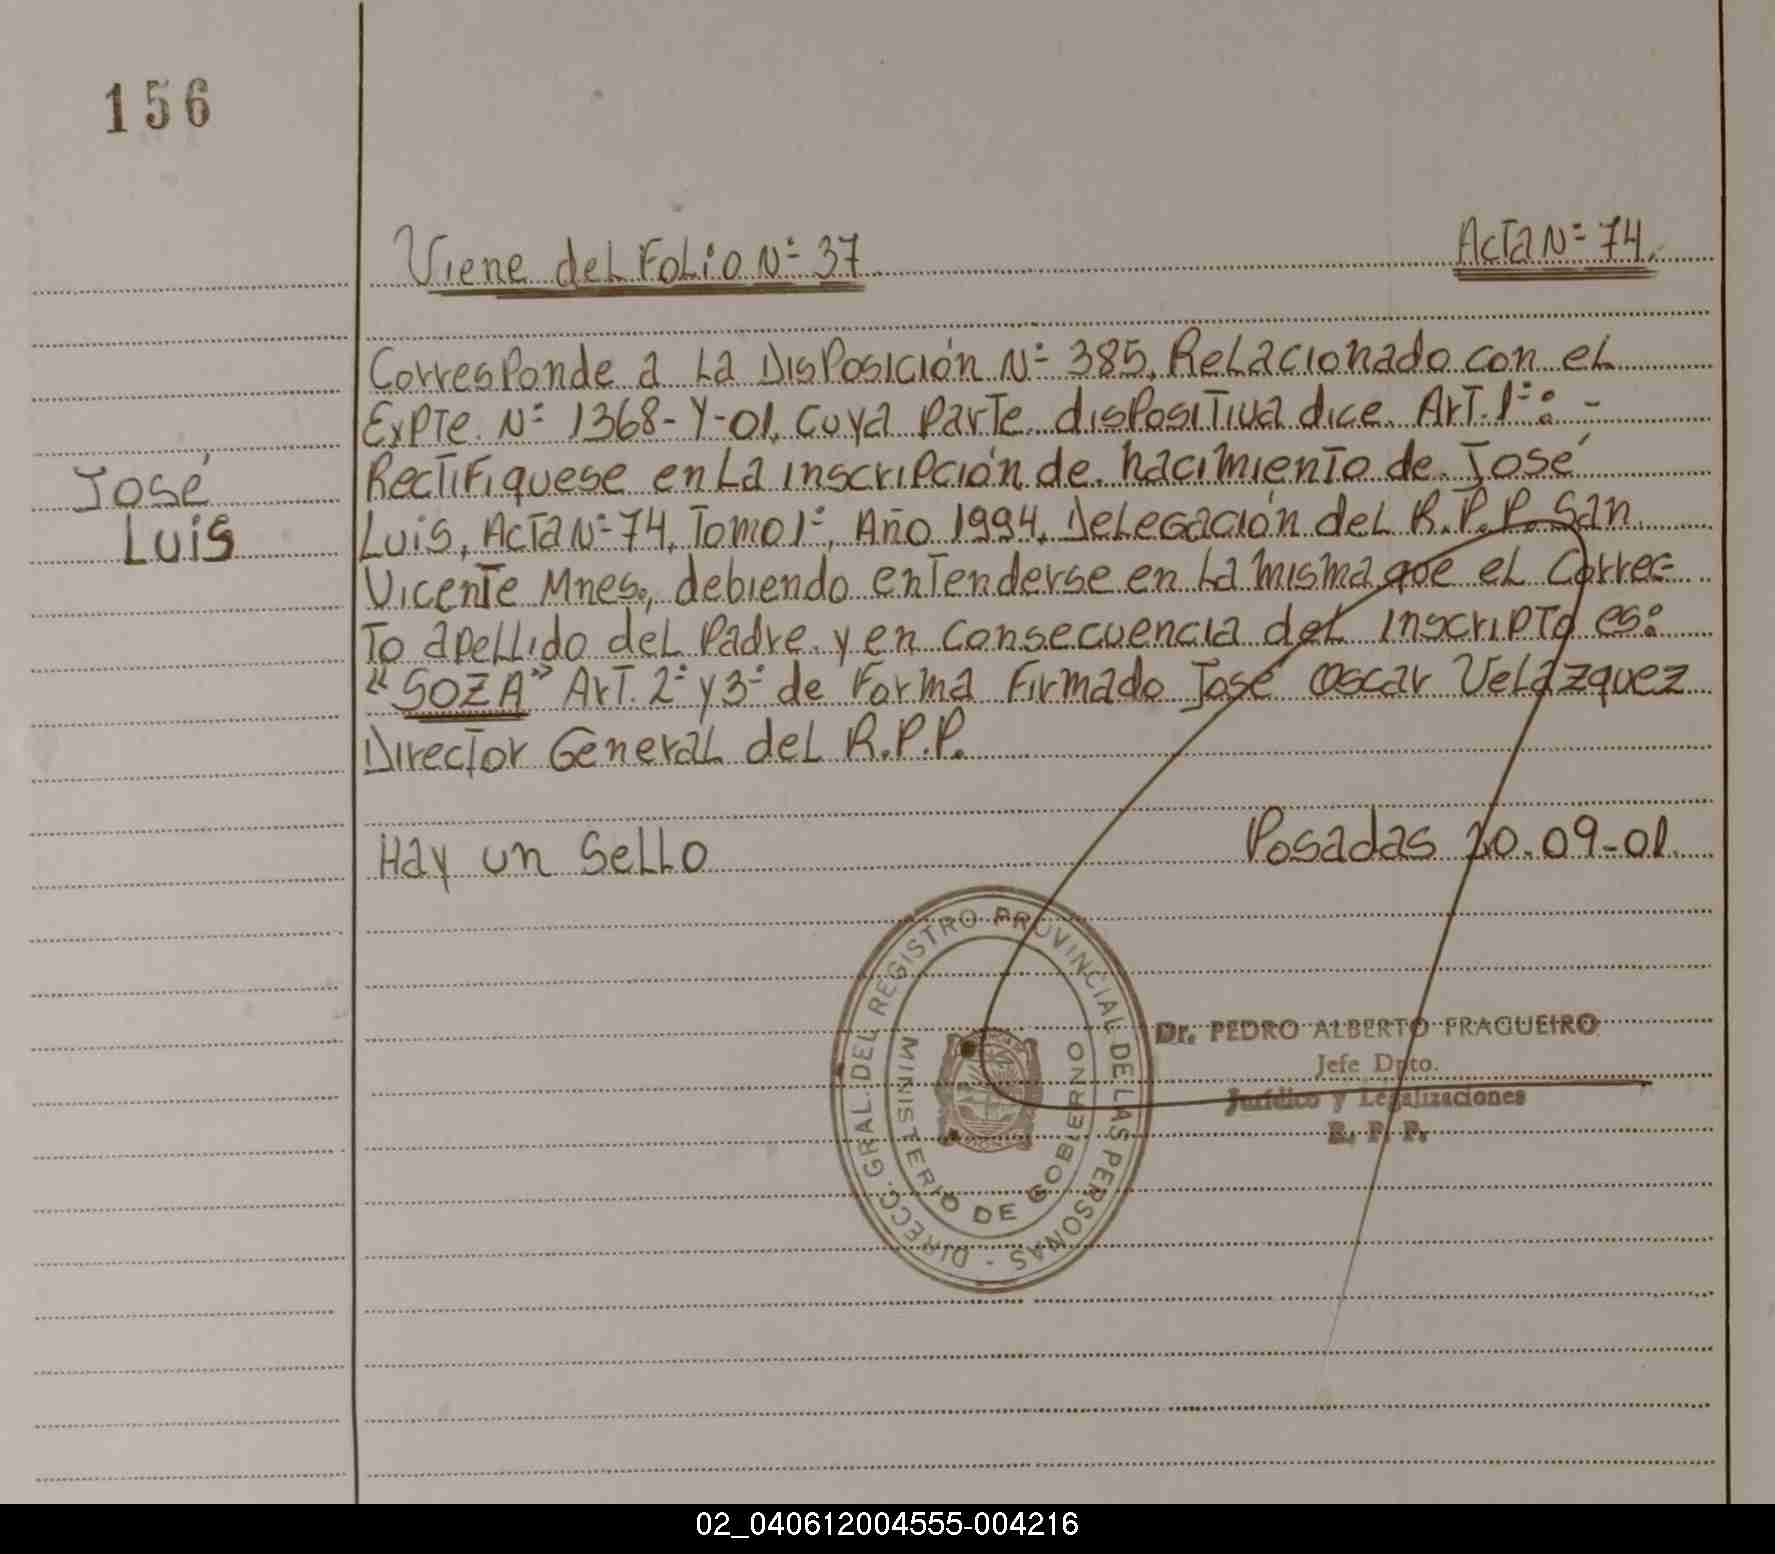 156
Viene del Folio Nº 37 Acta Nº 74.
Corresponde a La Disposición Nº 385, Relacionado con el
Expte. Nº 1368-Y-01, cuya parte dispositiva dice. Art. 1º: -
Rectifiquese en La inscripción de nacimiento de José
José
Luis, Acta Nº 74, Tomo 1º, Año 1994, Delegación del R.P.P. San
Luis
Vicente Mnes., debiendo entenderse en La misma que el Correc-
to apellido del Padre y en consecuencia del inscripto es:
"SOZA" Art. 2º y 3º de Forma Firmado José Oscar Velázquez
Director General del R.P.P.
Hay un Sello Posadas 20-09-01.
DIRECC. GRAL. DEL REGISTRO PROVINCIAL DE LAS PERSONAS -
MINISTERIO DE GOBIERNO
Dr. PEDRO ALBERTO FRAGUEIRO
Jefe Dpto.
Jurídico y Legalizaciones
R. P. P.
02_040612004555-004216